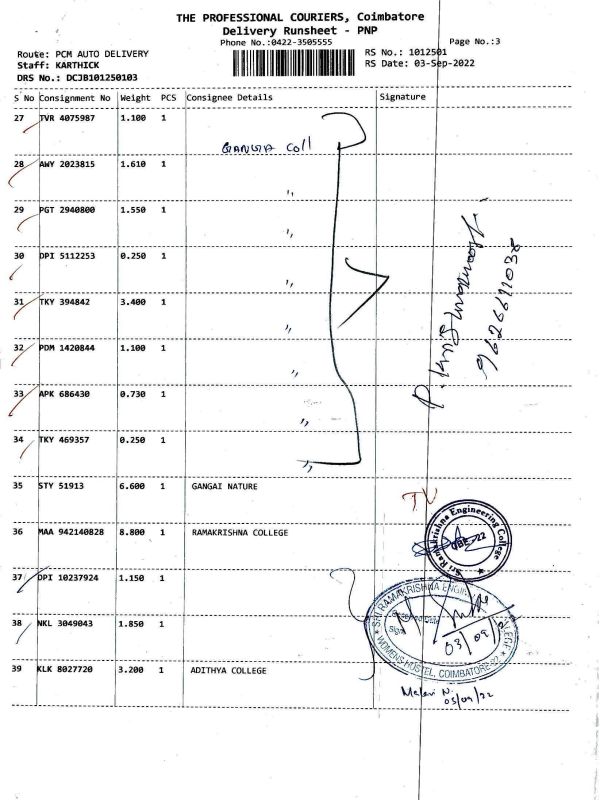 THE PROFESSIONAL COURIERS, Coimbatore
Delivery Runsheet - PNP
Phone No.:0422-3505555
Page No.:3
Route: PCM AUTO DELIVERY
RS No.: 1012501
Staff: KARTHICK
RS Date: 03-Sep-2022
DRS No.: DCJB101250103
S No Consignment No Weight PCS Consignee Details Signature
27 TVR 4075987 1.100 1
GANGA Coll
28 AWY 2023815 1.610 1
"
29 PGT 2940800 1.550 1
"
30 DPI 5112253 0.250 1
"
31 TKY 394842 3.400 1
"
32 PDM 1420844 1.100 1
"
33 APK 686430 0.730 1
"
34 TKY 469357 0.250 1
"
P. Krishnamoorthy
9626611038
35 STY 51913 6.600 1 GANGAI NATURE
TV
36 MAA 942140828 8.800 1 RAMAKRISHNA COLLEGE
Sri Ramakrishna Engineering College
37 DPI 10237924 1.150 1
38 NKL 3049043 1.850 1
SRI RAMAKRISHNA ENGINEERING COLLEGE
Sign
03/09/
WOMENS HOSTEL, COIMBATORE-22
39 KLK 8027720 3.200 1 ADITHYA COLLEGE
Malavi N.
03/09/22